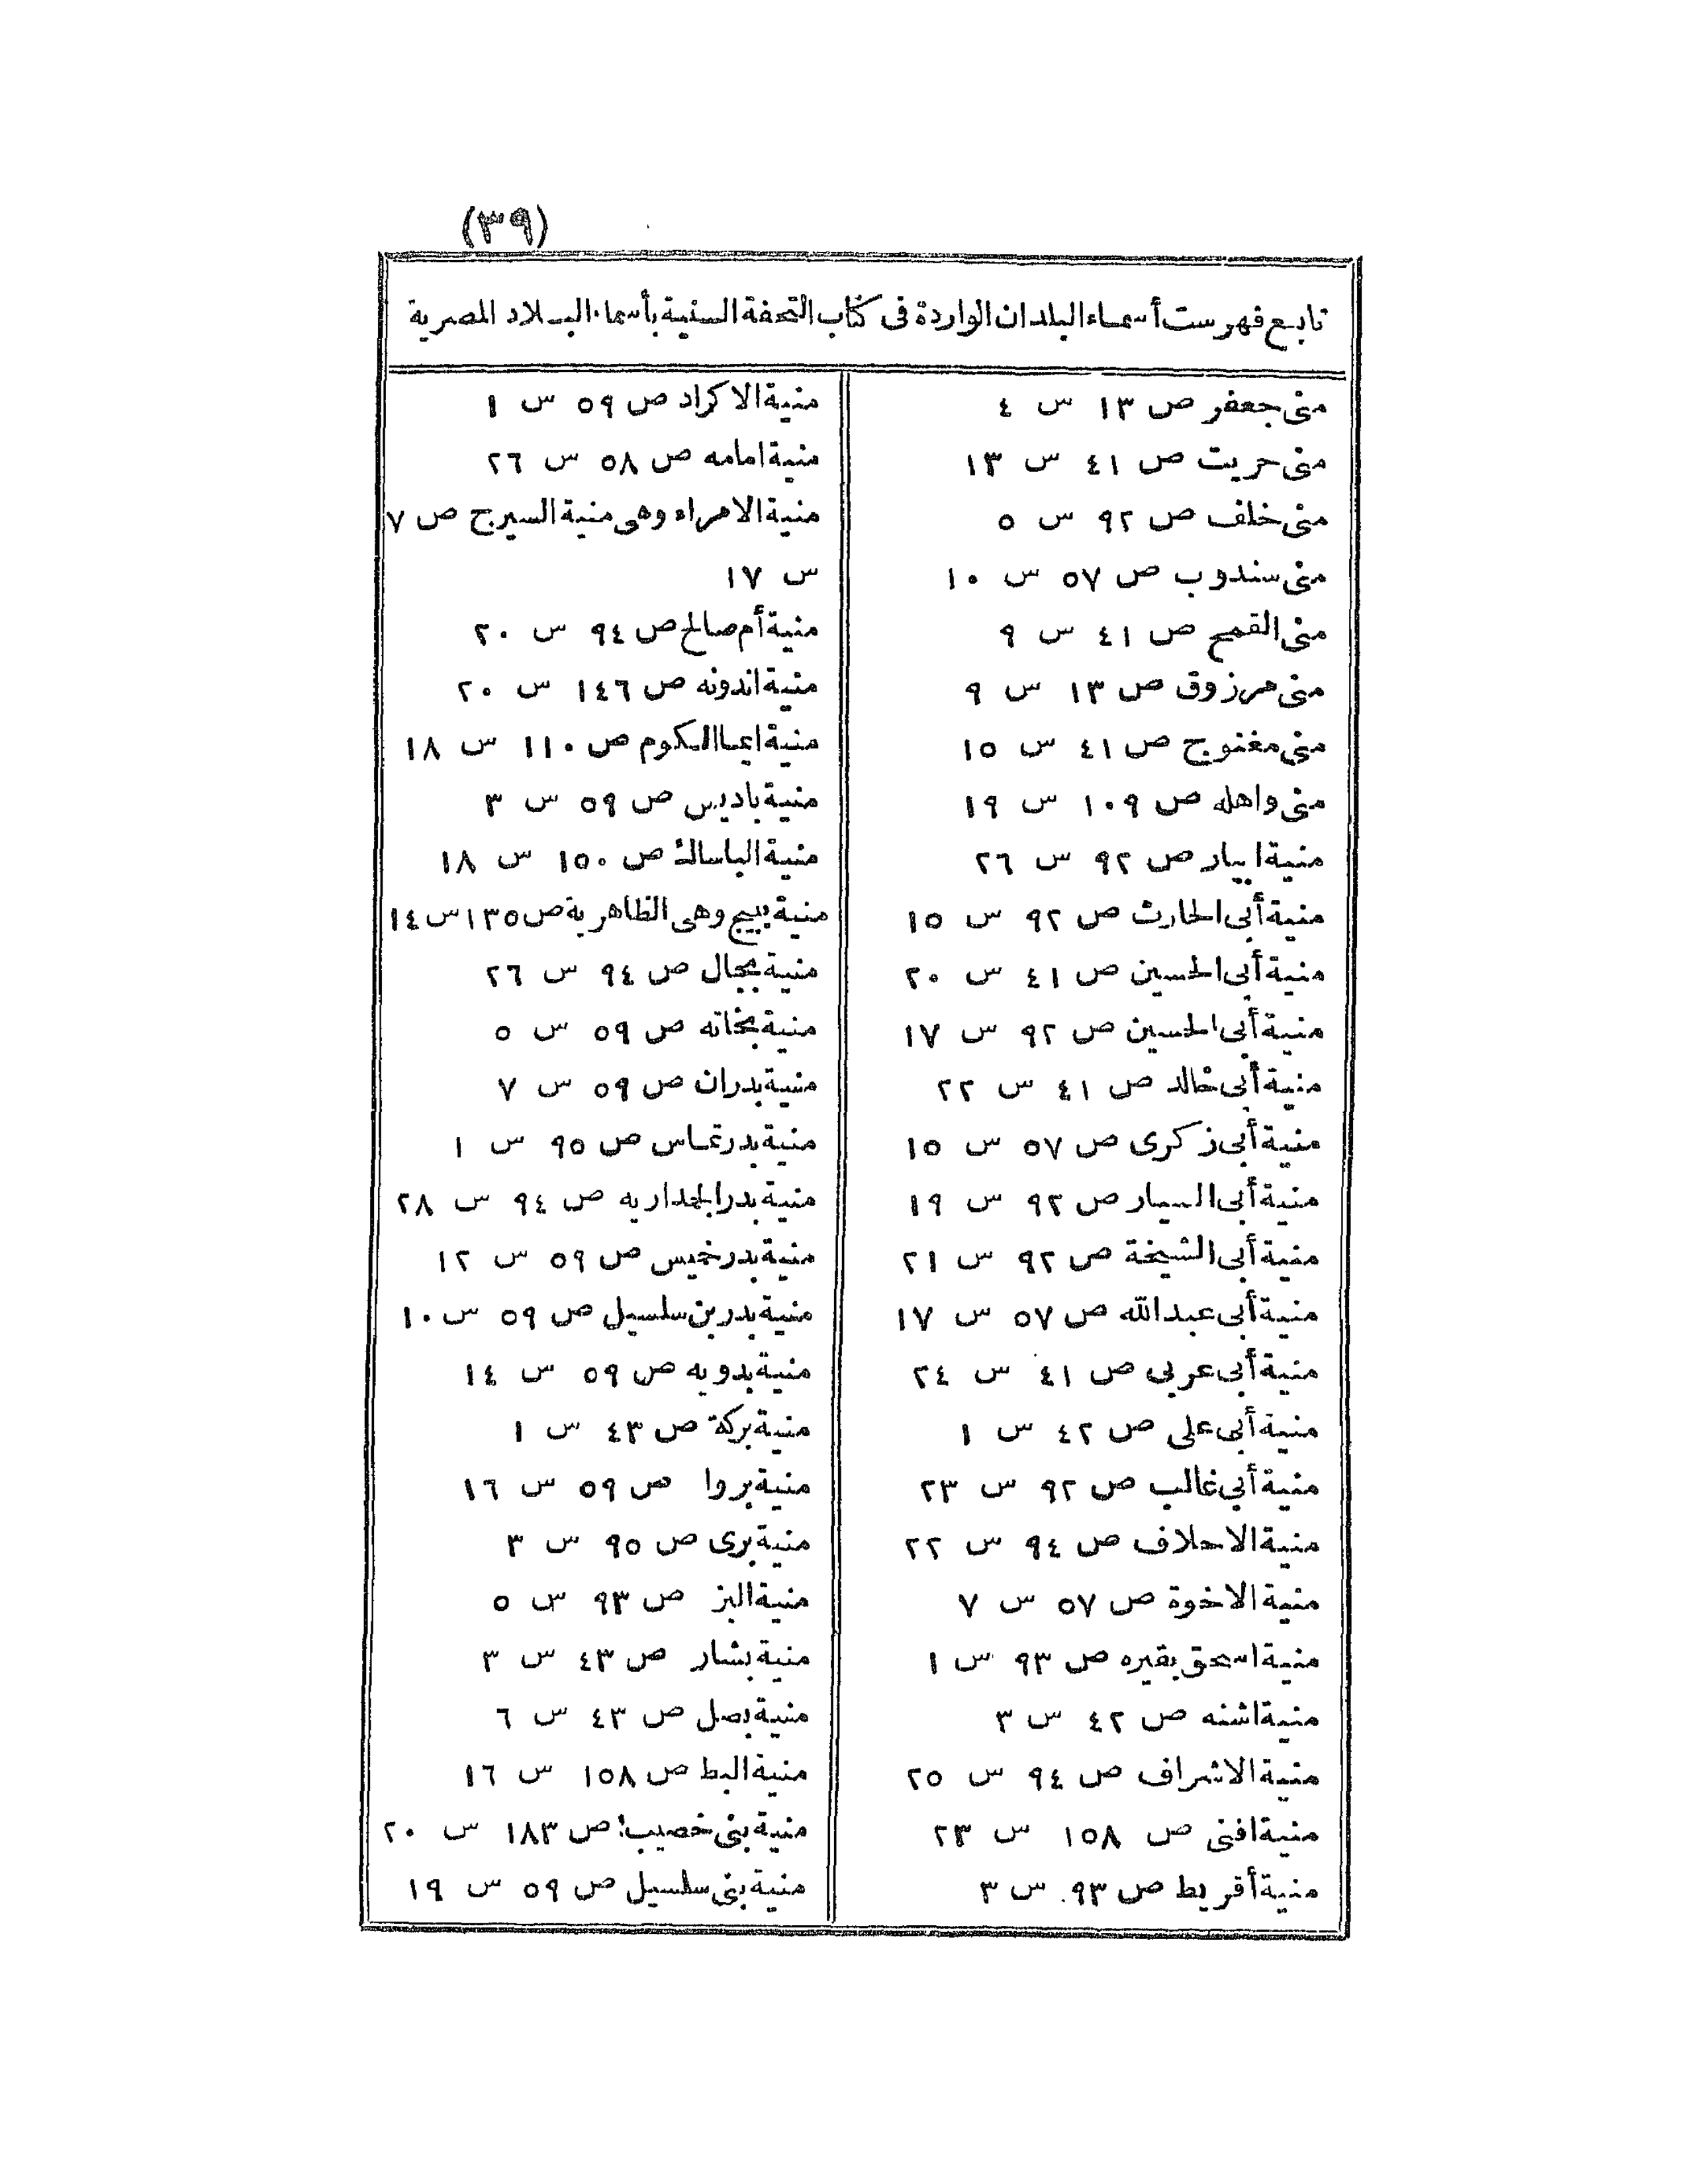 (٣٩)
تابع فهرست أسماء البلدان الواردة فى كتاب التحفة السنية بأسماء البلاد المصرية
منى جعفر ص ١٣ س ٤
منى حريت ص ٤١ س ١٣
منى خلف ص ٩٢ س ٥
منى سندوب ص ٥٧ س ١٠
منى القمح ص ٤١ س ٩
منى مرزوق ص ١٣ س ٩
منى مغنوج ص ٤١ س ١٥
منى واهله ص ١٠٩ س ١٩
منية ابيار ص ٩٢ س ٢٦
منية أبى الحارث ص ٩٢ س ١٥
منية أبى الحسين ص ٤١ س ٢٠
منية أبى الحسين ص ٩٢ س ١٧
منية أبى خالد ص ٤١ س ٢٢
منية أبى زكرى ص ٥٧ س ١٥
منية أبى السيار ص ٩٢ س ١٩
منية أبى الشيخة ص ٩٢ س ٢١
منية أبى عبد الله ص ٥٧ س ١٧
منية أبى عربى ص ٤١ س ٢٤
منية أبى على ص ٤٢ س ١
منية أبى غالب ص ٩٢ س ٢٣
منية الاحلاف ص ٩٤ س ٢٢
منية الاخوة ص ٥٧ س ٧
منية اسحق بقيره ص ٩٣ س ١
منية اشنه ص ٤٢ س ٣
منية الاشراف ص ٩٤ س ٢٥
منية افنى ص ١٥٨ س ٢٣
منية أقريط ص ٩٣ س ٣
منية الاكراد ص ٥٩ س ١
منية امامه ص ٥٨ س ٢٦
منية الامراء وهى منية السيرج ص ٧
س ١٧
منية أم صالح ص ٩٤ س ٢٠
منية اندونه ص ١٤٦ س ٢٠
منية ايما الكوم ص ١١٠ س ١٨
منية باديس ص ٥٩ س ٣
منية الباساك ص ١٥٠ س ١٨
منية بيج وهى الظاهرية ص ١٣٥ س ١٤
منية بجال ص ٩٤ س ٢٦
منية بخاته ص ٥٩ س ٥
منية بدران ص ٥٩ س ٧
منية بدر تماس ص ٩٥ س ١
منية بدر الجمداريه ص ٩٤ س ٢٨
منية بدر خميس ص ٥٩ س ١٢
منية بدر بن سلسيل ص ٥٩ س ١٠
منية بدويه ص ٥٩ س ١٤
منية بركة ص ٤٣ س ١
منية بروا ص ٥٩ س ١٦
منية برى ص ٩٥ س ٣
منية البز ص ٩٣ س ٥
منية بشار ص ٤٣ س ٣
منية بصل ص ٤٣ س ٦
منية البط ص ١٥٨ س ١٦
منية بنى خصيب ص ١٨٣ س ٢٠
منية بنى سلسيل ص ٥٩ س ١٩